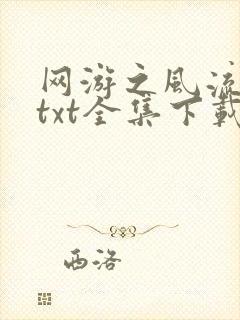 网游之风流
txt全集下载
西洛